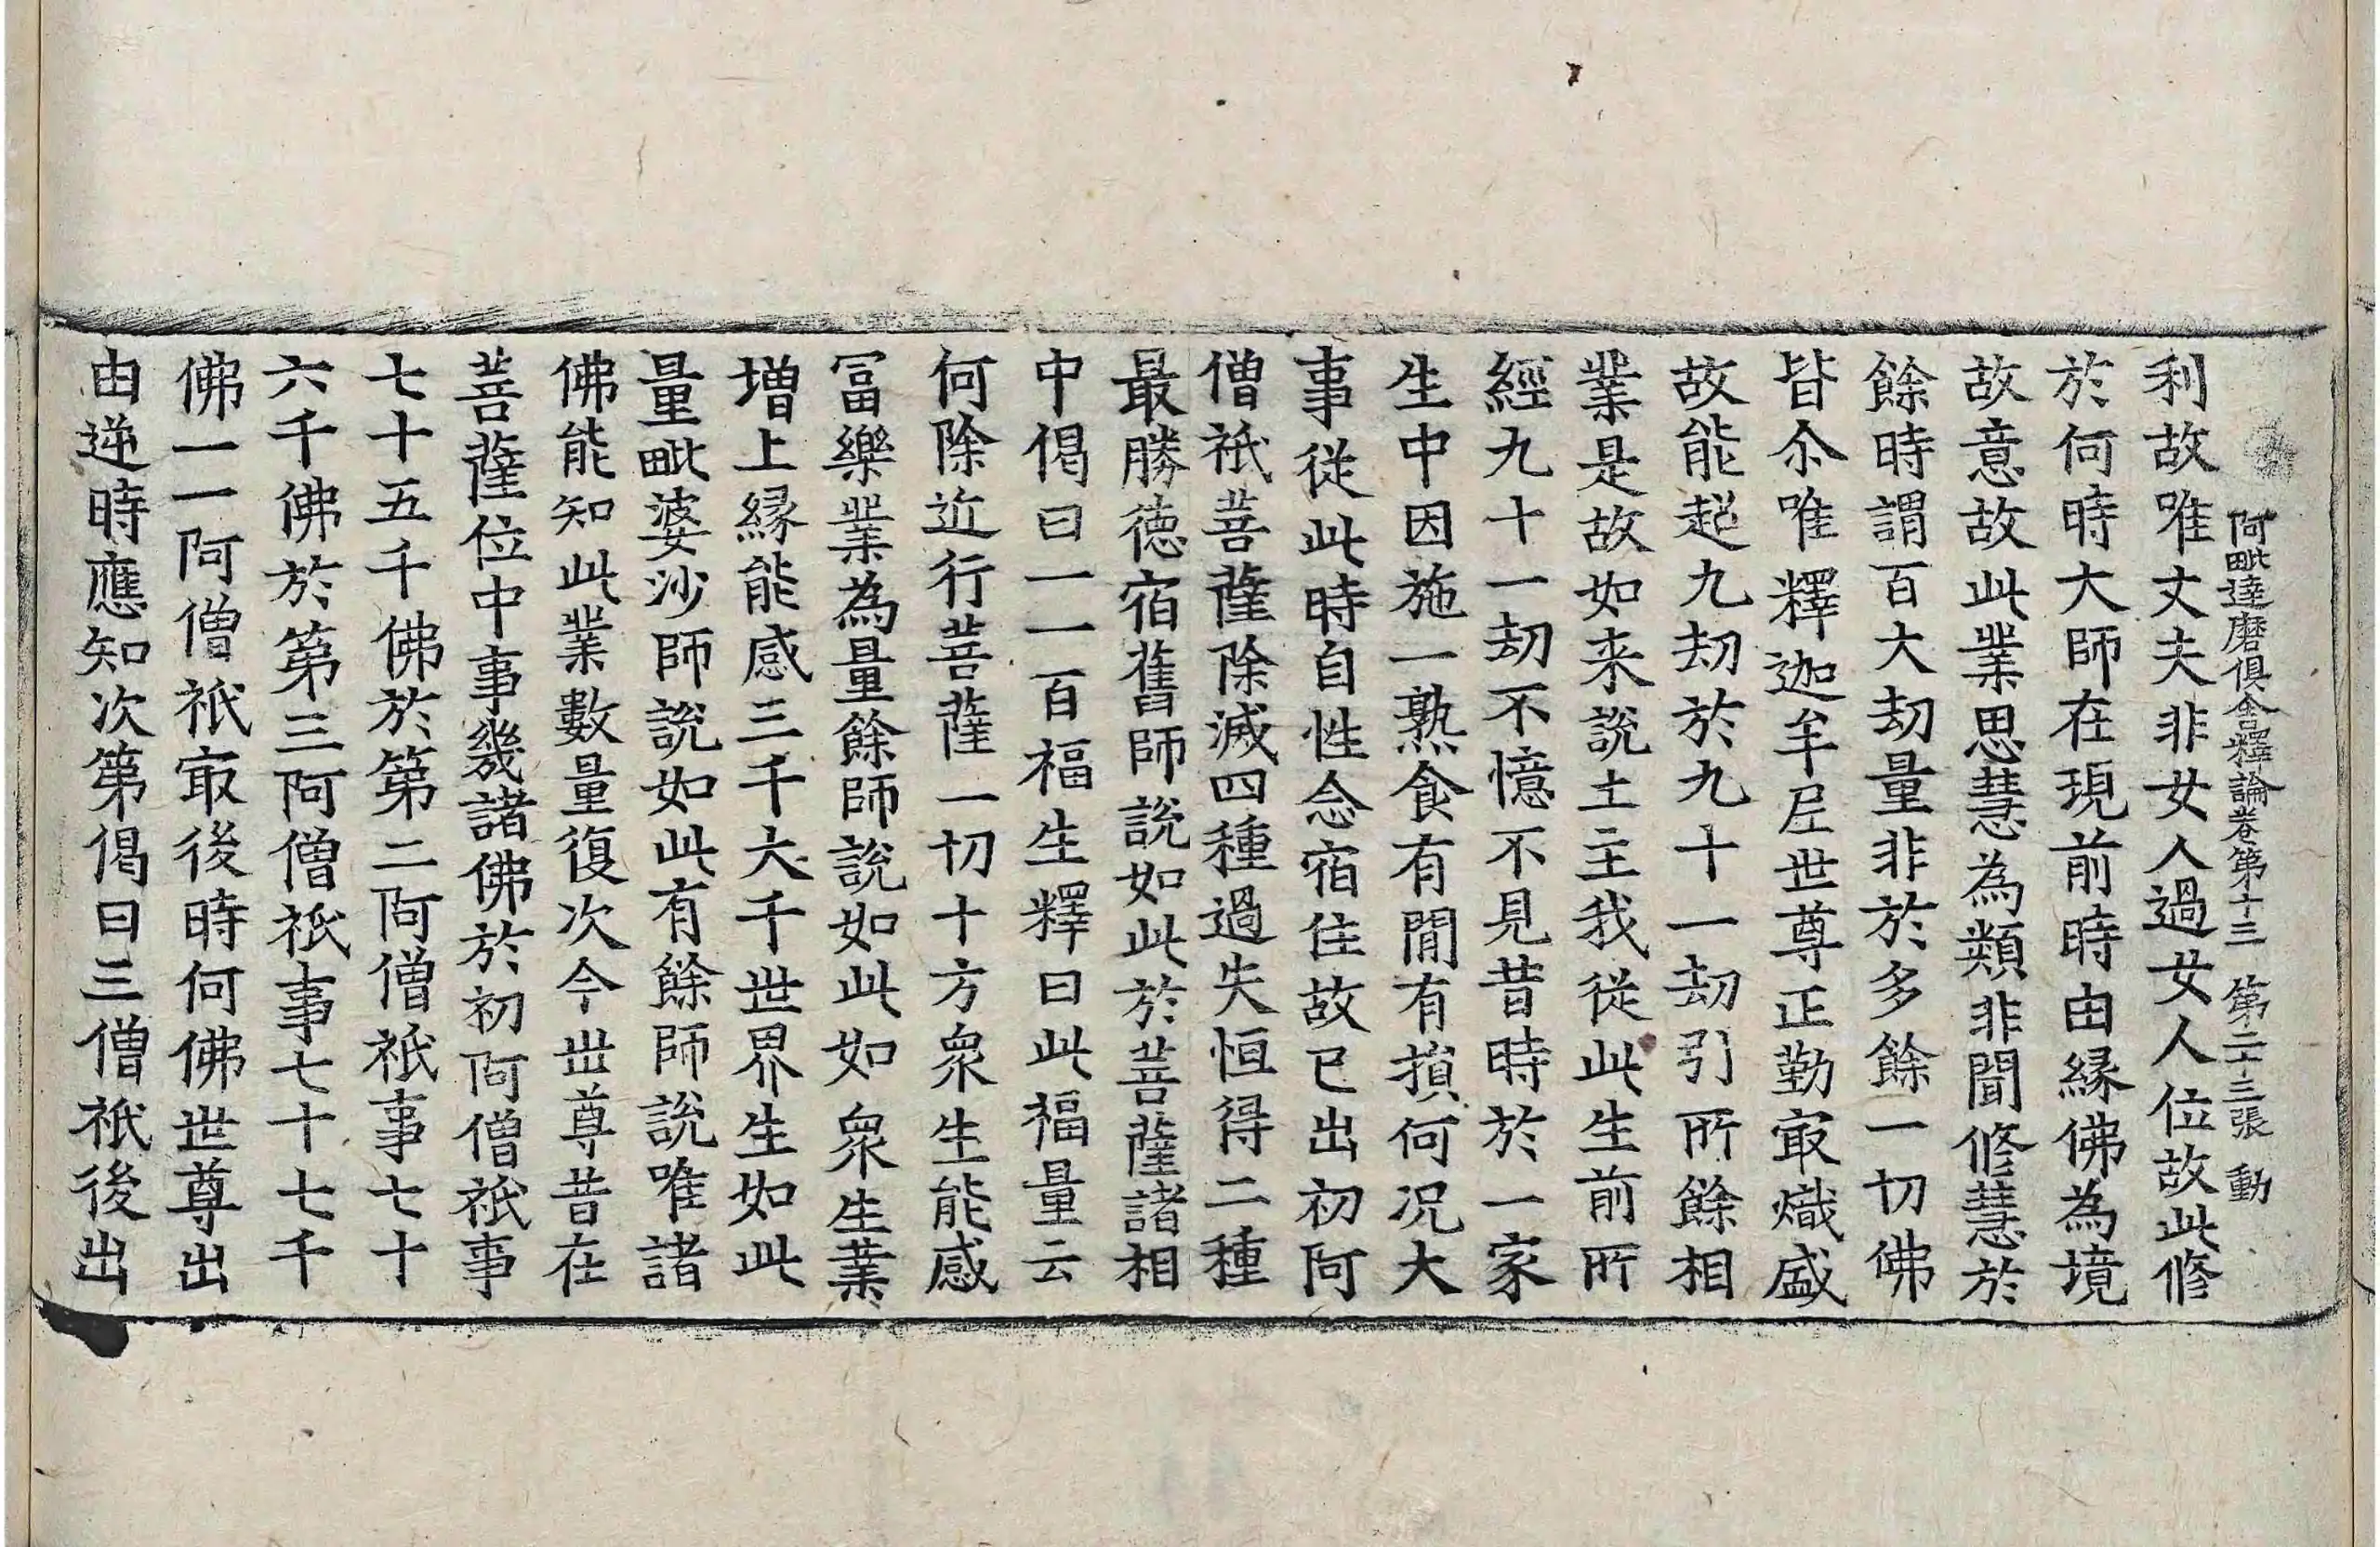 阿毗達磨俱舍釋論卷第十三 第二十三張 動
利故唯丈夫非女人過女人位故此修
於何時大師在現前時由緣佛為境
故意故此業思慧為類非聞修慧於
餘時謂百大劫量非於多餘一切佛
皆尒唯釋迦牟尼世尊正勤㝡熾盛
故能起九劫於九十一劫引所餘相
業是故如来說土主我從此生前所
經九十一劫不憶不見昔時於一家
生中因施一熟食有閒有損何况大
事從此時自性念宿住故已出初阿
僧祇菩薩除滅四種過失恒得二種
最勝德宿舊師說如此於菩薩諸相
中偈曰一一百福生釋曰此福量云
何除近行菩薩一切十方衆生能感
冨樂業為量餘師說如此如衆生業
增上緣能感三千大千世界生如此
量毗婆沙師說如此有餘師說唯諸
佛能知此業數量復次今世尊昔在
菩薩位中事幾諸佛於初阿僧祇事
七十五千佛於第二阿僧祇事七十
六千佛於第三阿僧祇事七十七千
佛一一阿僧祇㝡後時何佛世尊出
由逆時應知次第偈曰三僧祇後出